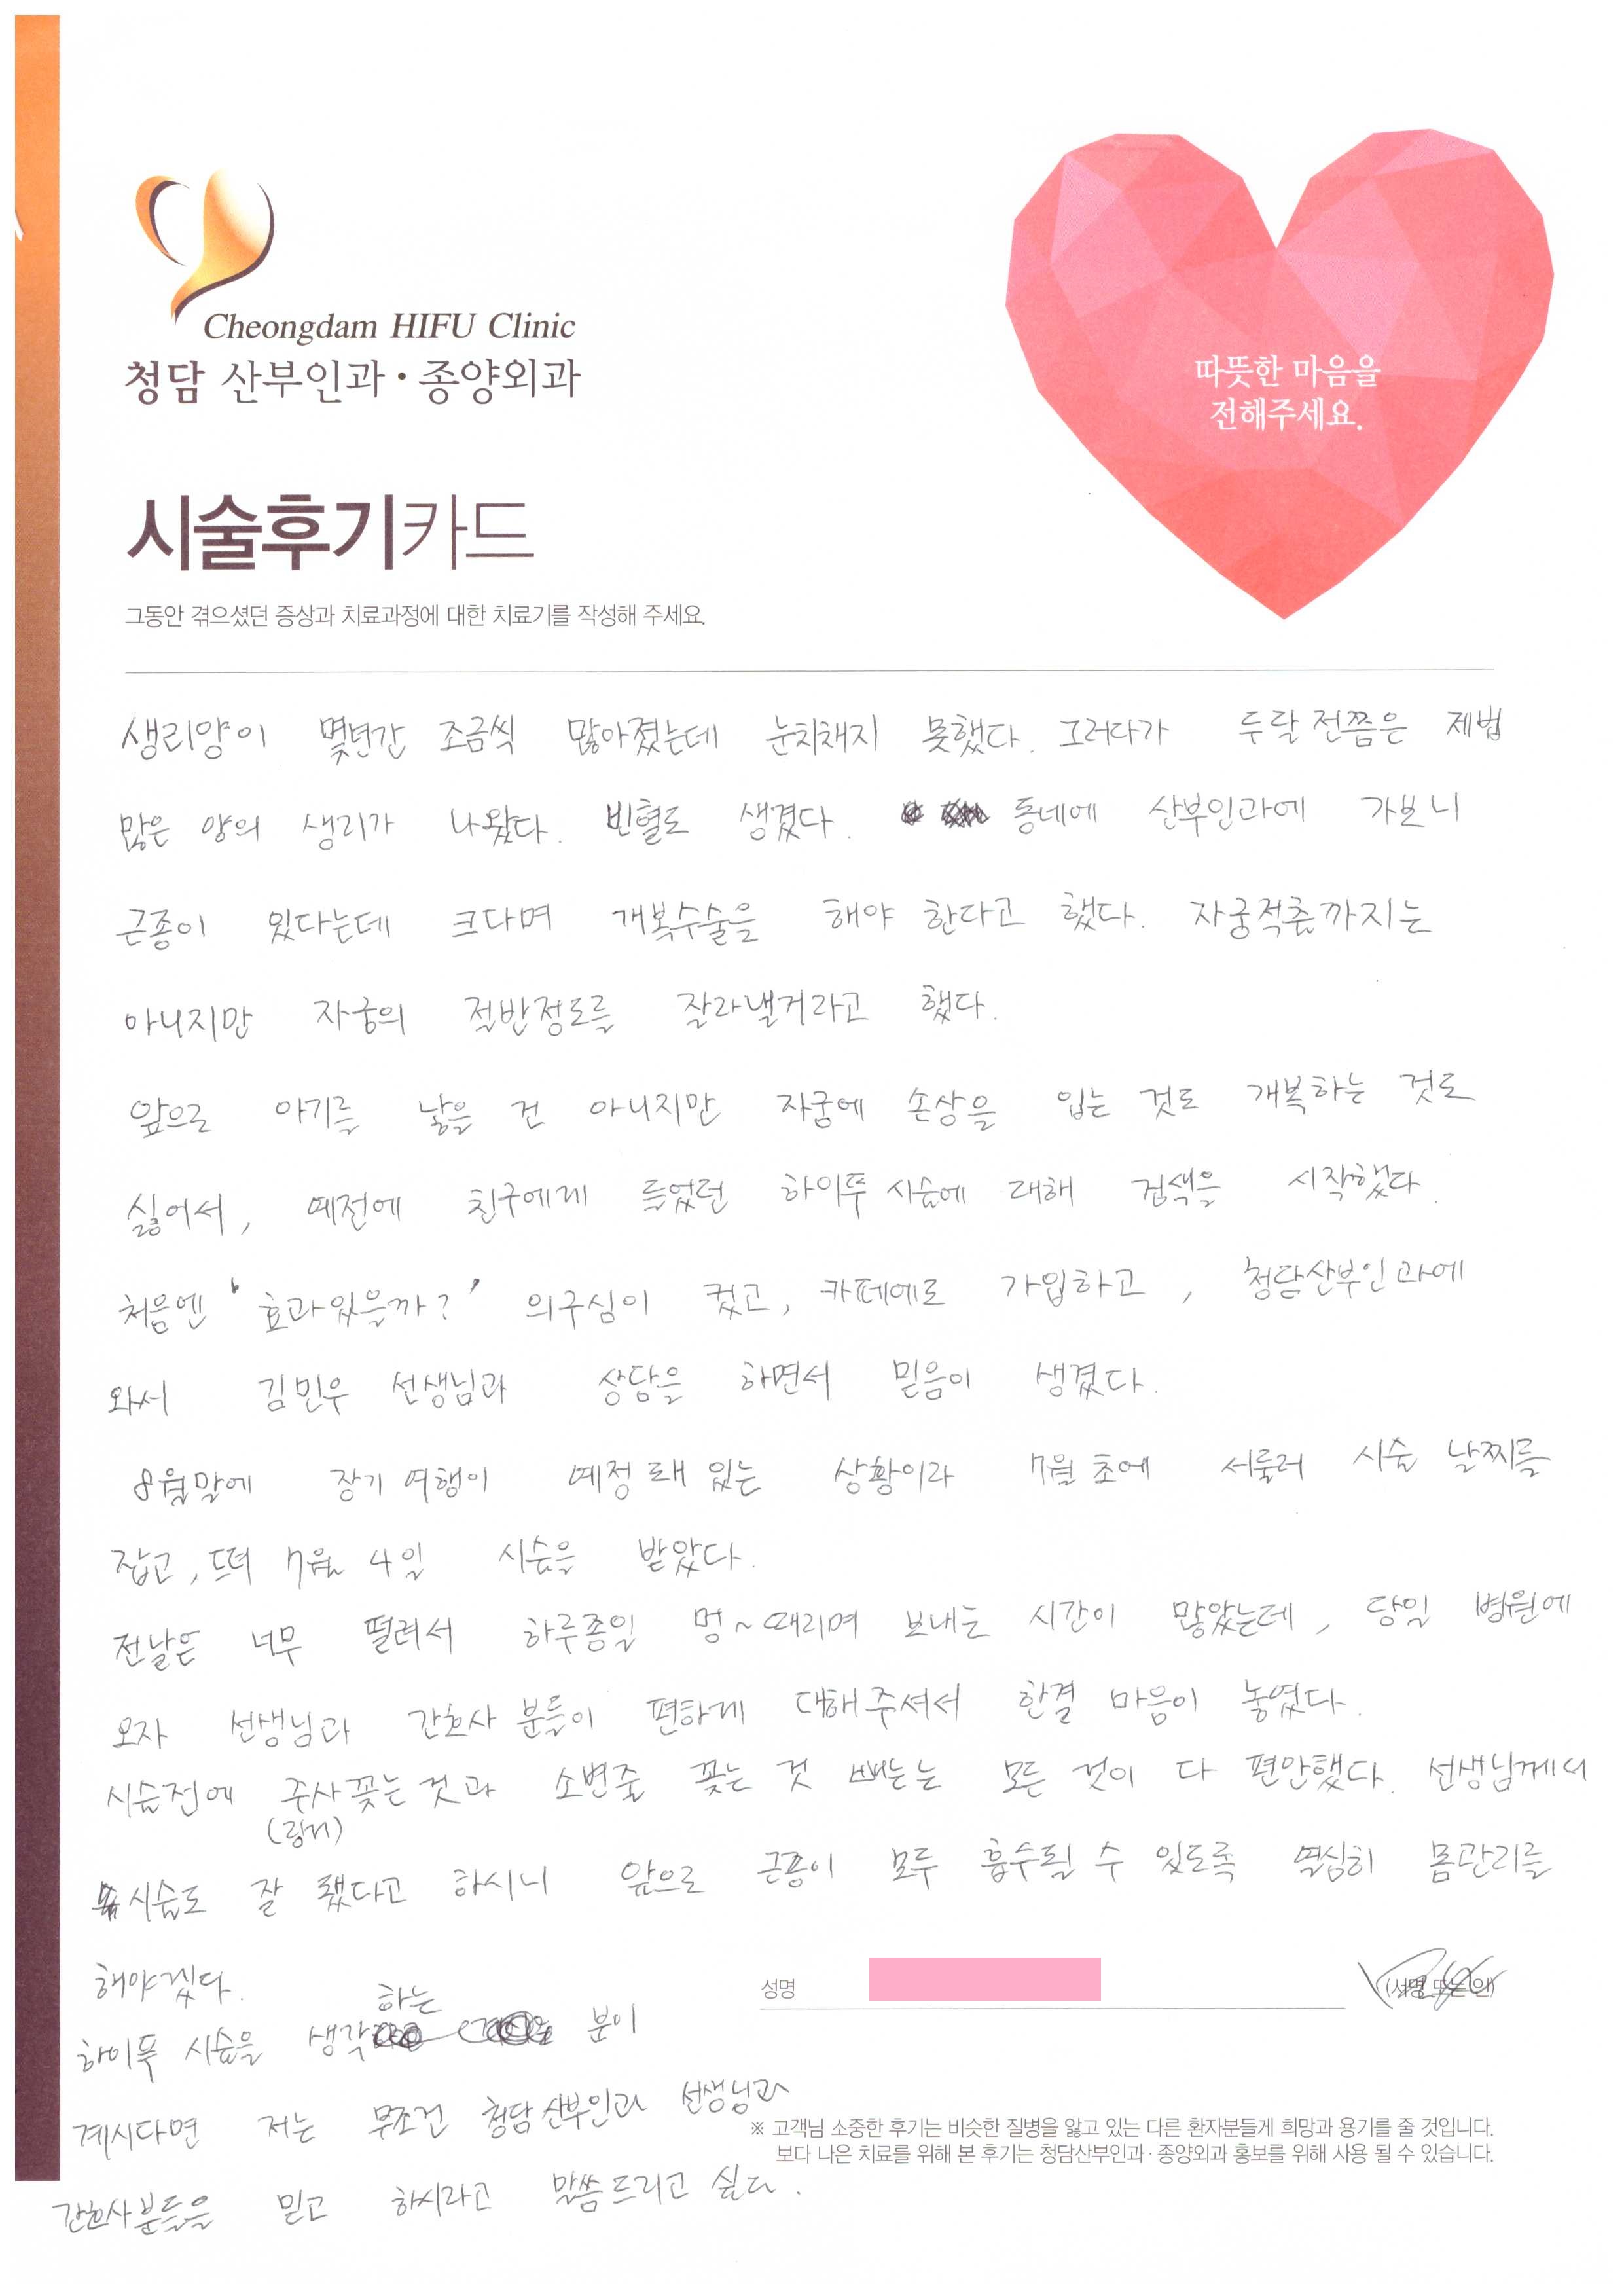 Cheongdam HIFU Clinic
청담 산부인과·종양외과
따뜻한 마음을
전해주세요.
시술후기카드
그동안 겪으셨던 증상과 치료과정에 대한 치료기를 작성해 주세요.
생리양이 몇년간 조금씩 많아졌는데 눈치채지 못했다. 그러다가 두달 전쯤은 제법
많은 양의 생리가 나왔다. 빈혈도 생겼다. 동네에 산부인과에 가보니
근종이 있다는데 크다며 개복수술을 해야 한다고 했다. 자궁적출까지는
아니지만 자궁의 절반정도를 잘라낼거라고 했다.
앞으로 아기를 낳을 건 아니지만 자궁에 손상을 입는 것도 개복하는 것도
싫어서, 예전에 친구에게 들었던 하이푸 시술에 대해 검색을 시작했다.
처음엔 '효과있을까?' 의구심이 컸고, 카페에도 가입하고, 청담산부인과에
와서 김민우 선생님과 상담을 하면서 믿음이 생겼다.
8월말에 장기 여행이 예정돼 있는 상황이라 7월 초에 서둘러 시술 날짜를
잡고, 뜨뎌 7월 4일 시술을 받았다.
전날은 너무 떨려서 하루종일 멍~때리며 보내는 시간이 많았는데, 당일 병원에
오자 선생님과 간호사 분들이 편하게 대해주셔서 한결 마음이 놓였다.
시술전에 주사꽂는 것과 소변줄 꽂는 것 빼는 모든 것이 다 편안했다. 선생님께서
(링거)
시술도 잘 됐다고 하시니 앞으로 근종이 모두 흡수될 수 있도록 열심히 몸관리를
해야겠다.
하이푸 시술을 생각하는 분이
계시다면 저는 무조건 청담산부인과 선생님과
간호사분들을 믿고 하시라고 말씀드리고 싶다.
성명
(서명 또는 인)
※ 고객님 소중한 후기는 비슷한 질병을 앓고 있는 다른 환자분들게 희망과 용기를 줄 것입니다.
보다 나은 치료를 위해 본 후기는 청담산부인과·종양외과 홍보를 위해 사용 될 수 있습니다.